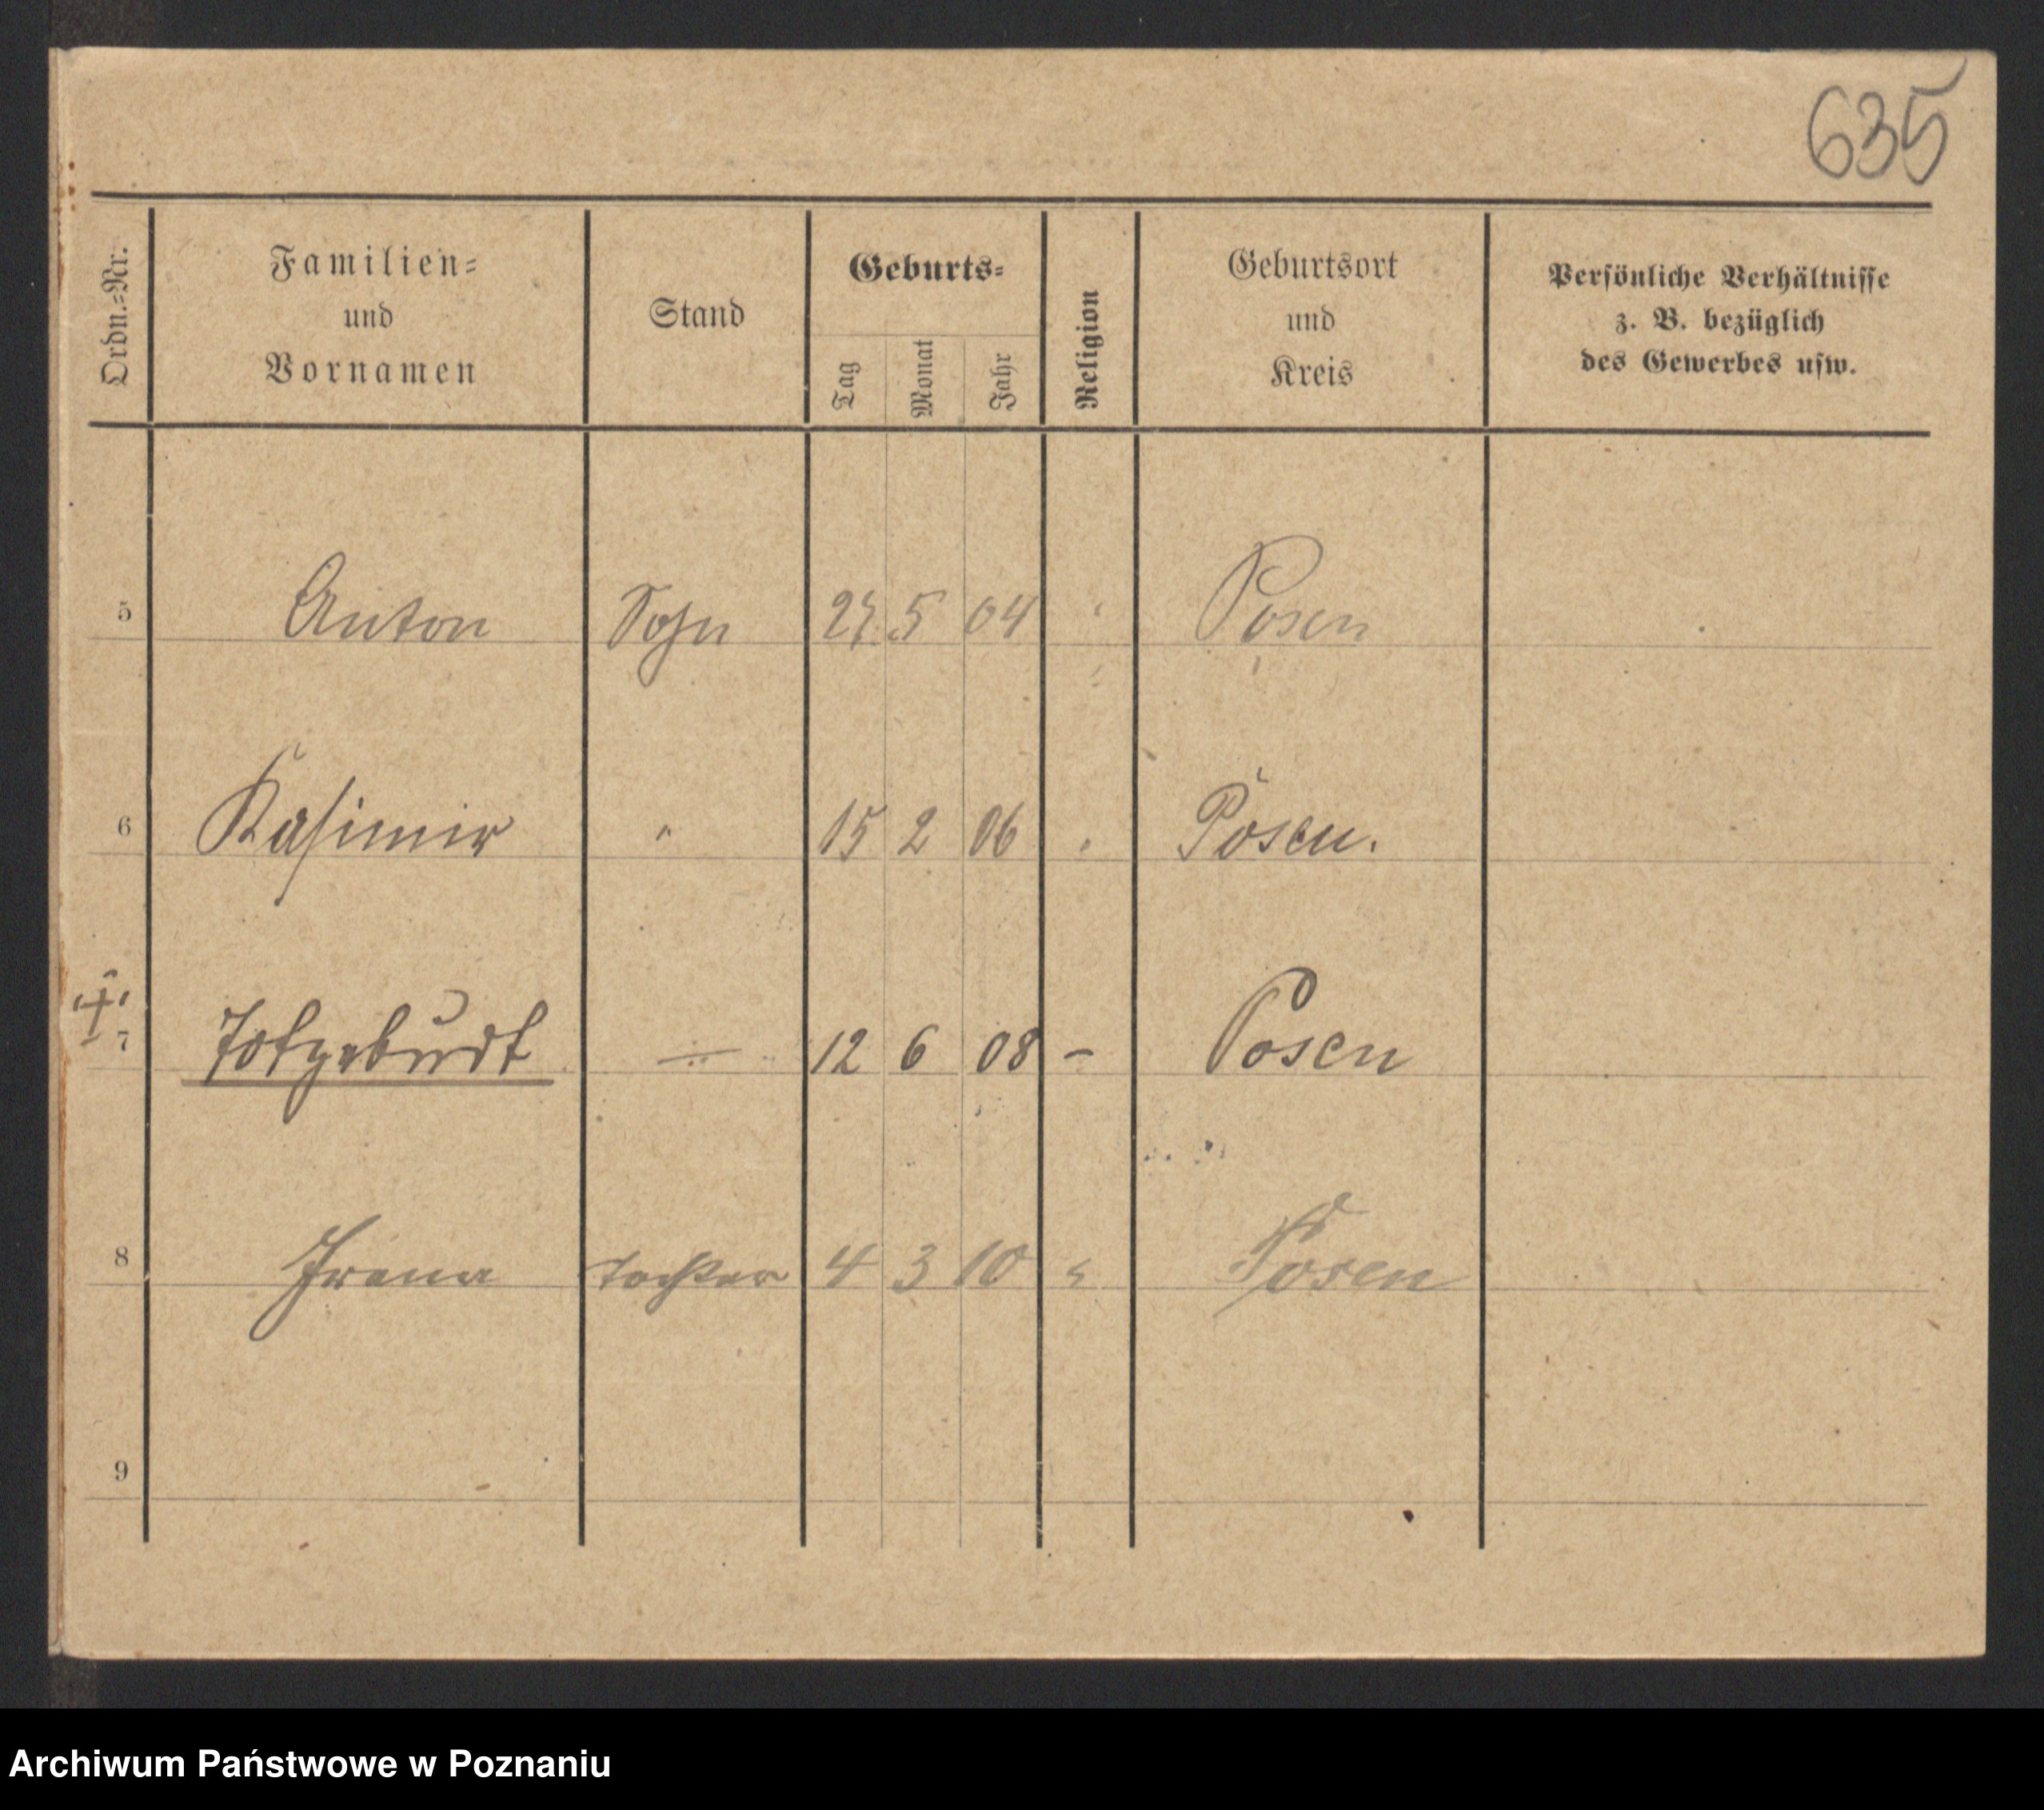 635
Ordn.=Nr. Familien= und Vornamen Stand Geburts= Tag Monat Jahr Religion Geburtsort und Kreis Persönliche Verhältnisse z. B. bezüglich des Gewerbes usw.
5 Anton Sohn 5 04 " Posen
6 Kasimir " 15 2 06 " Posen.
† 7 Totgeburt — 12 6 08 – Posen
8 Irena Tochter 4 3 10 " Posen
9
Archiwum Państwowe w Poznaniu